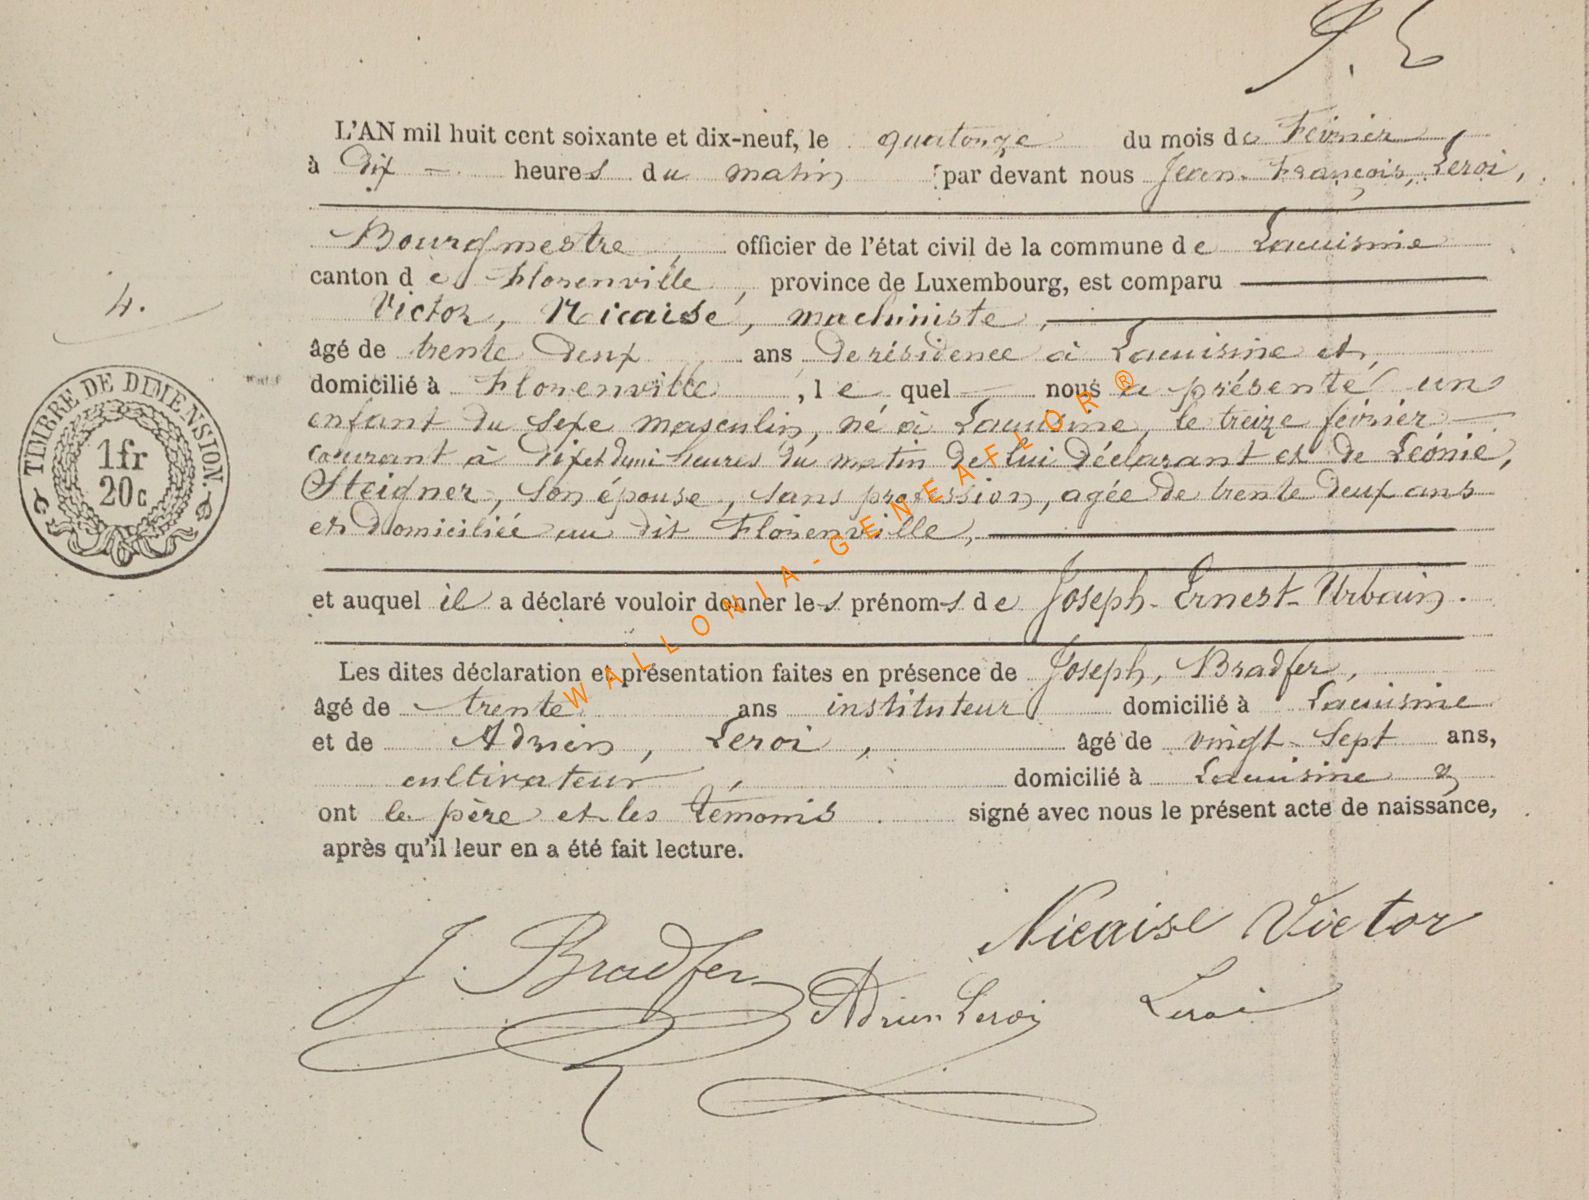 L'AN mil huit cent soixante et dix-neuf, le quatorze du mois de Février
à Dix heures du matin par devant nous Jean-François, Leroi,
Bourgmestre, officier de l'état civil de la commune de Lacuisine
canton de Florenville, province de Luxembourg, est comparu
Victor, Nicaise, machiniste,
4.
âgé de trente deux ans de résidence à Lacuisine et,
domicilié à Florenville, le quel nous a présenté un
enfant du sexe masculin, né à Lacuisine, le treize février
courant à dix et demi heures du matin de lui déclarant et de Léonie,
Steigner, son épouse, sans profession, agée de trente deux ans
et domiciliée au dit Florenville,
TIMBRE DE DIMENSION.
1fr
20c
et auquel il a déclaré vouloir donner les prénoms de Joseph-Ernest-Urbain.
Les dites déclaration et présentation faites en présence de Joseph, Bradfer,
âgé de trente ans instituteur domicilié à Lacuisine
et de Adrien, Leroi, âgé de vingt-sept ans,
cultivateur, domicilié à Lacuisine
ont le père et les témoins signé avec nous le présent acte de naissance,
après qu'il leur en a été fait lecture.
WALLONIA-GENEAFLOR®
Nicaise Victor
J. Bradfer
Adrien Leroi Leroi